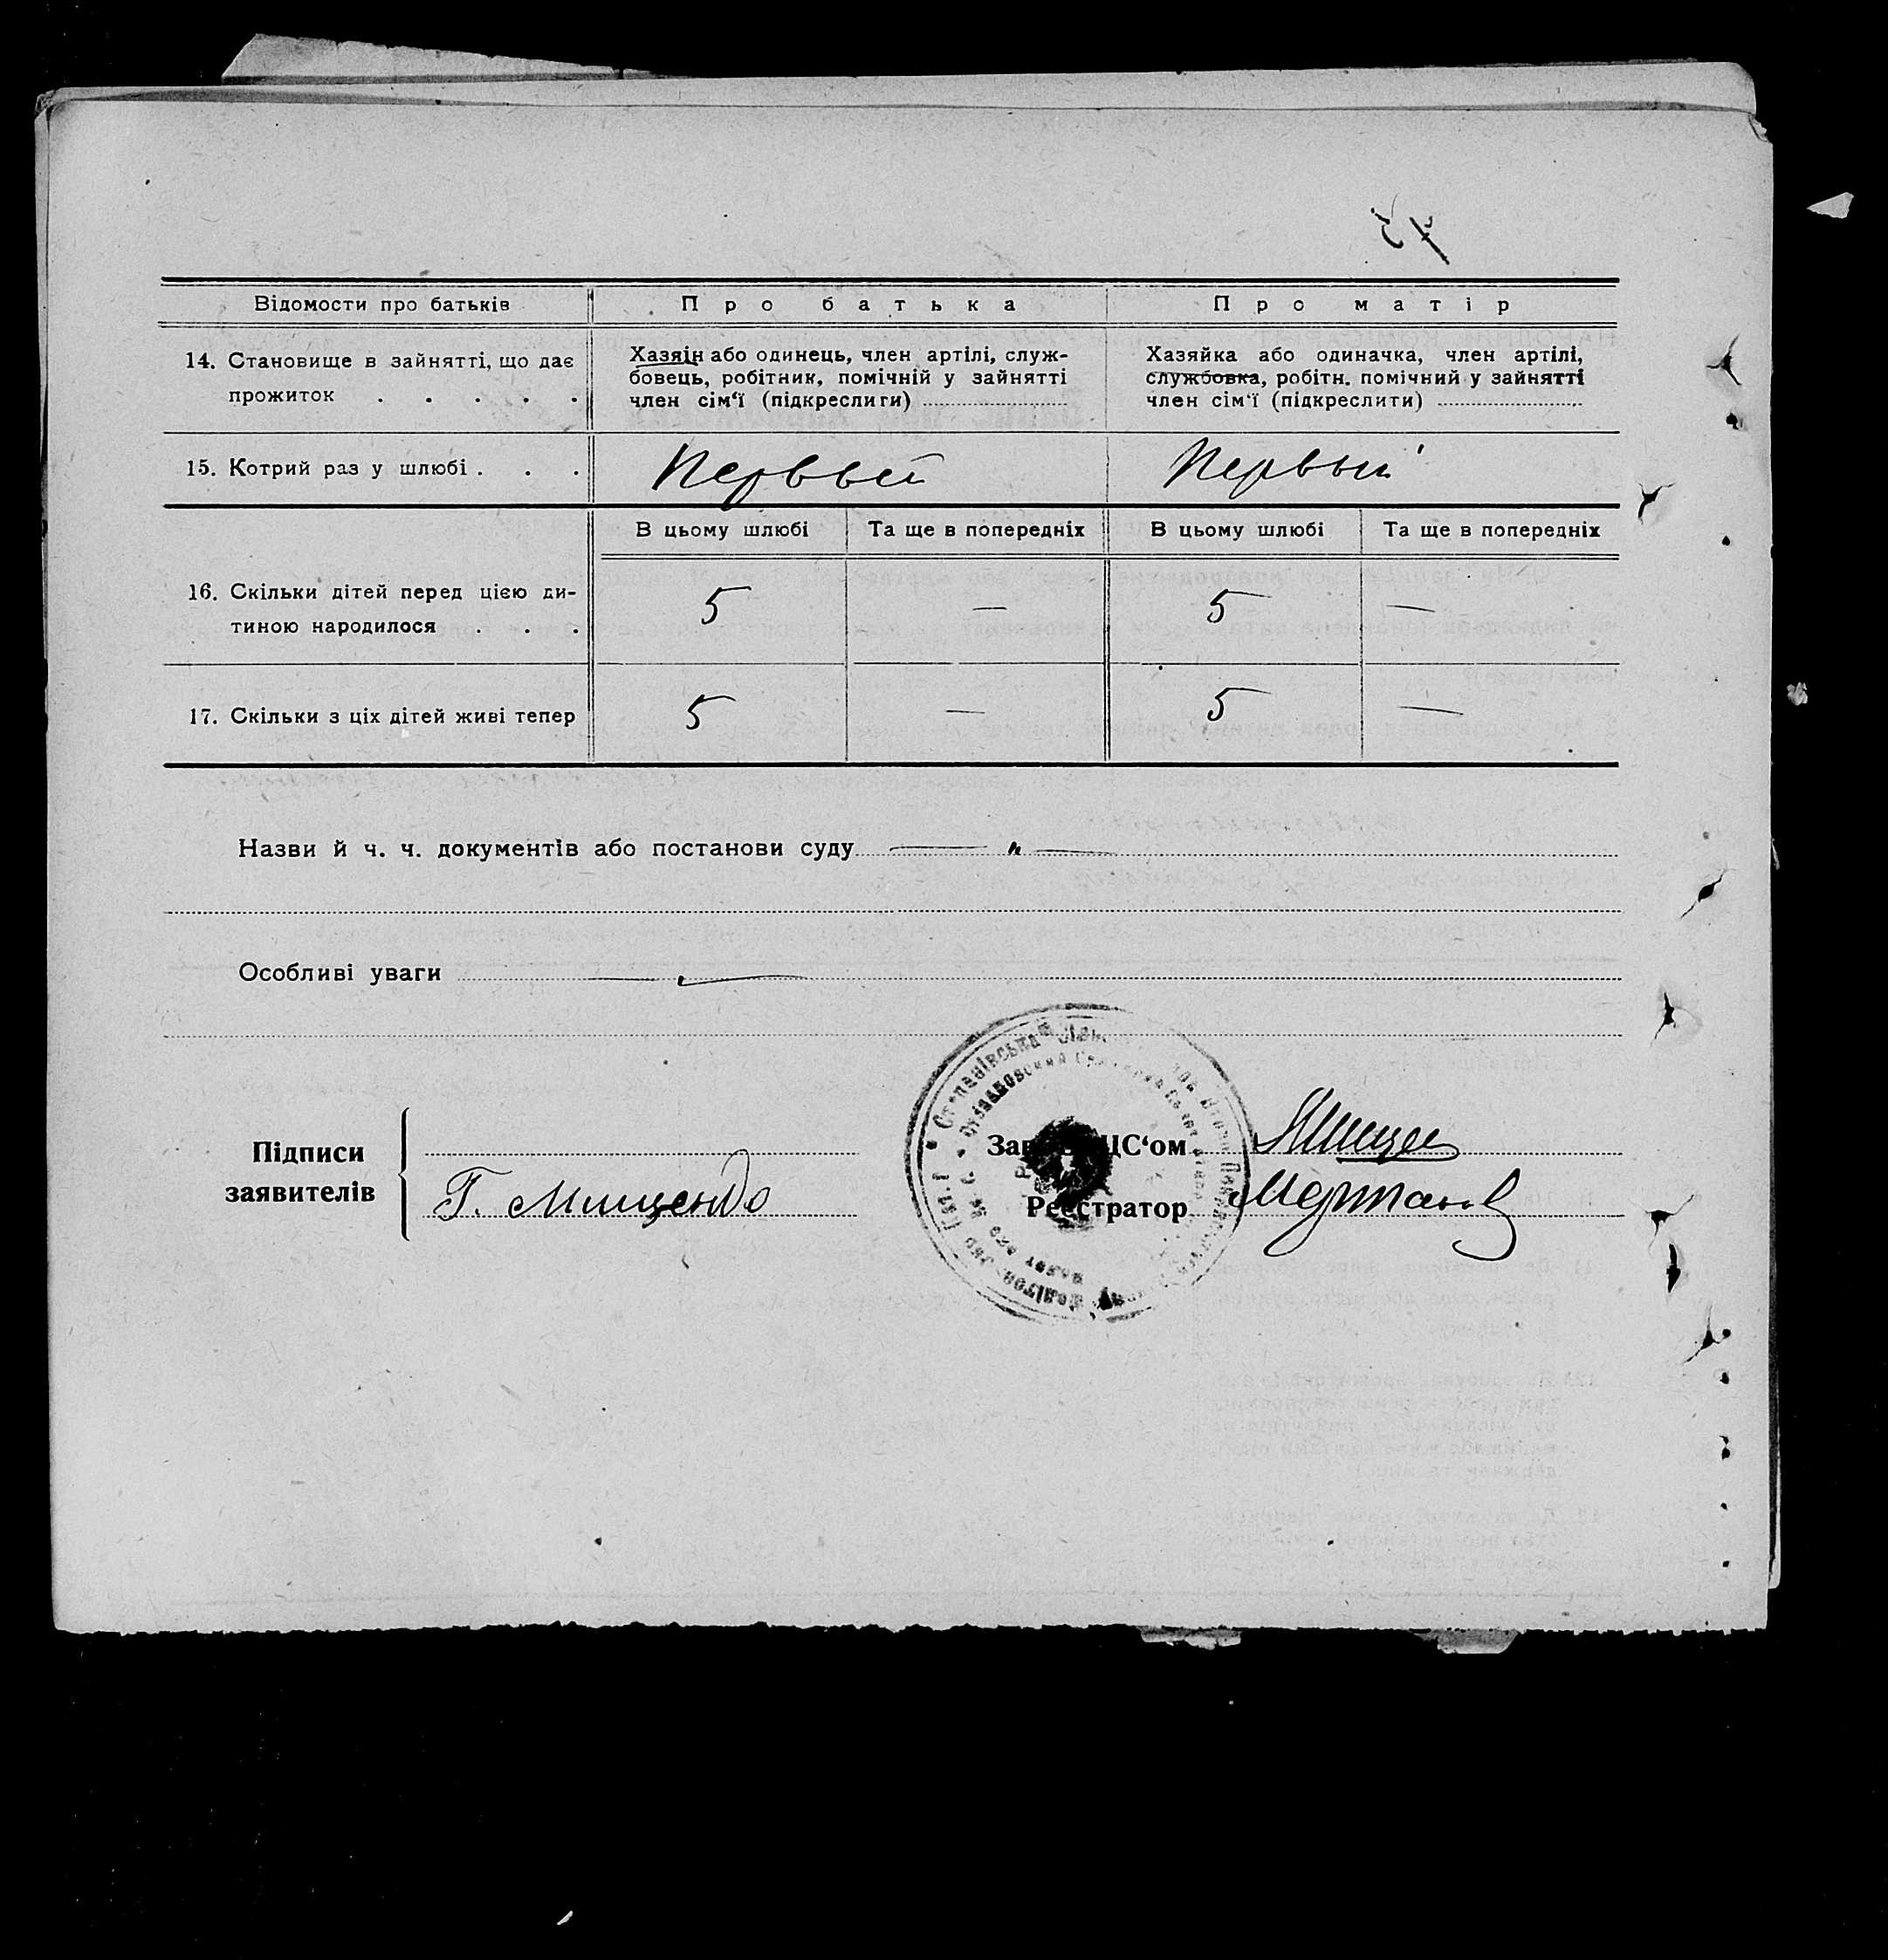 Відомости про батьків Про батька Про матір
14. Становище в зайнятті, що дає прожиток . . . . .
Хазяїн або одинець, член артілі, служ-
бовець, робітник, помічній у зайнятті
член сім'ї (підкреслити)
Хазяйка або одиначка, член артілі,
службовка, робітн. помічний у зайнятті
член сім'ї (підкреслити)
15. Котрий раз у шлюбі . . . Первый Первый
В цьому шлюбі Та ще в попередніх В цьому шлюбі Та ще в попередніх
16. Скільки дітей перед цією ди-
тиною народилося . . . 5 — 5 —
17. Скільки з ціх дітей живі тепер 5 — 5 —
Назви й ч. ч. документів або постанови суду
Особливі уваги
Підписи
заявителів
Г. Мищенко
ЦС'ом
Реєстратор